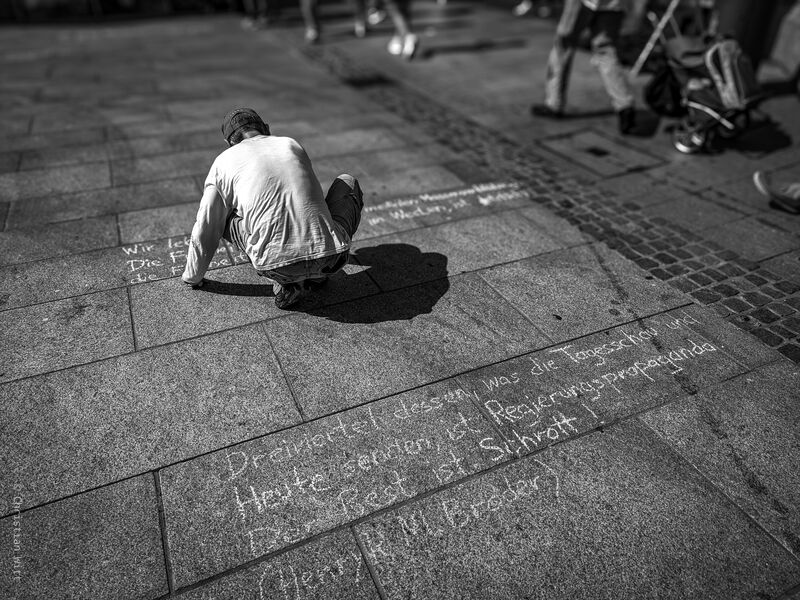 Wir
Die
die
im Westen, ist
Dreiviertel dessen, was die Tagesschau und
Heute senden, ist Regierungspropaganda.
Der Rest ist Schrott!
(Henry M. Broder)
© Christian Wirt